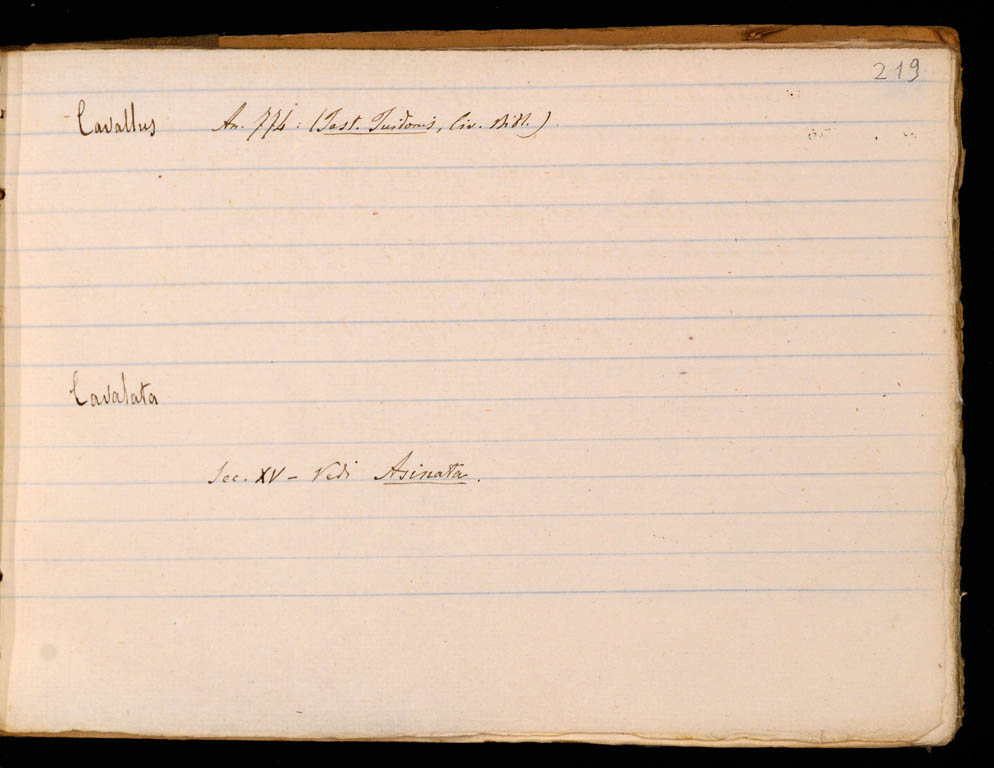 219
Cavallus An. 774: (Test. Tuidonis, Civ. Bibl.)
Cavalata
Sec. XV - Vedi Asinata.